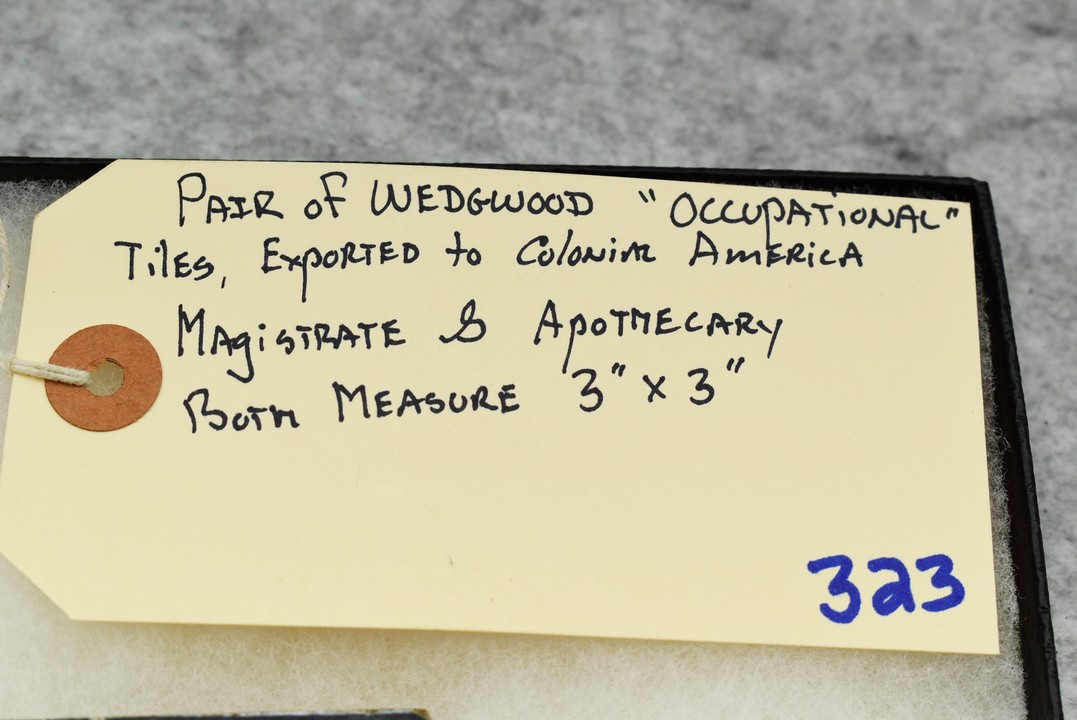 PAIR of WEDGWOOD "OCCUPATIONAL"
Tiles, EXPORTED to Colonial AMERICA
MAgiSTRATE & APOTHECARY
BOTH MEASURE 3" x 3"
323